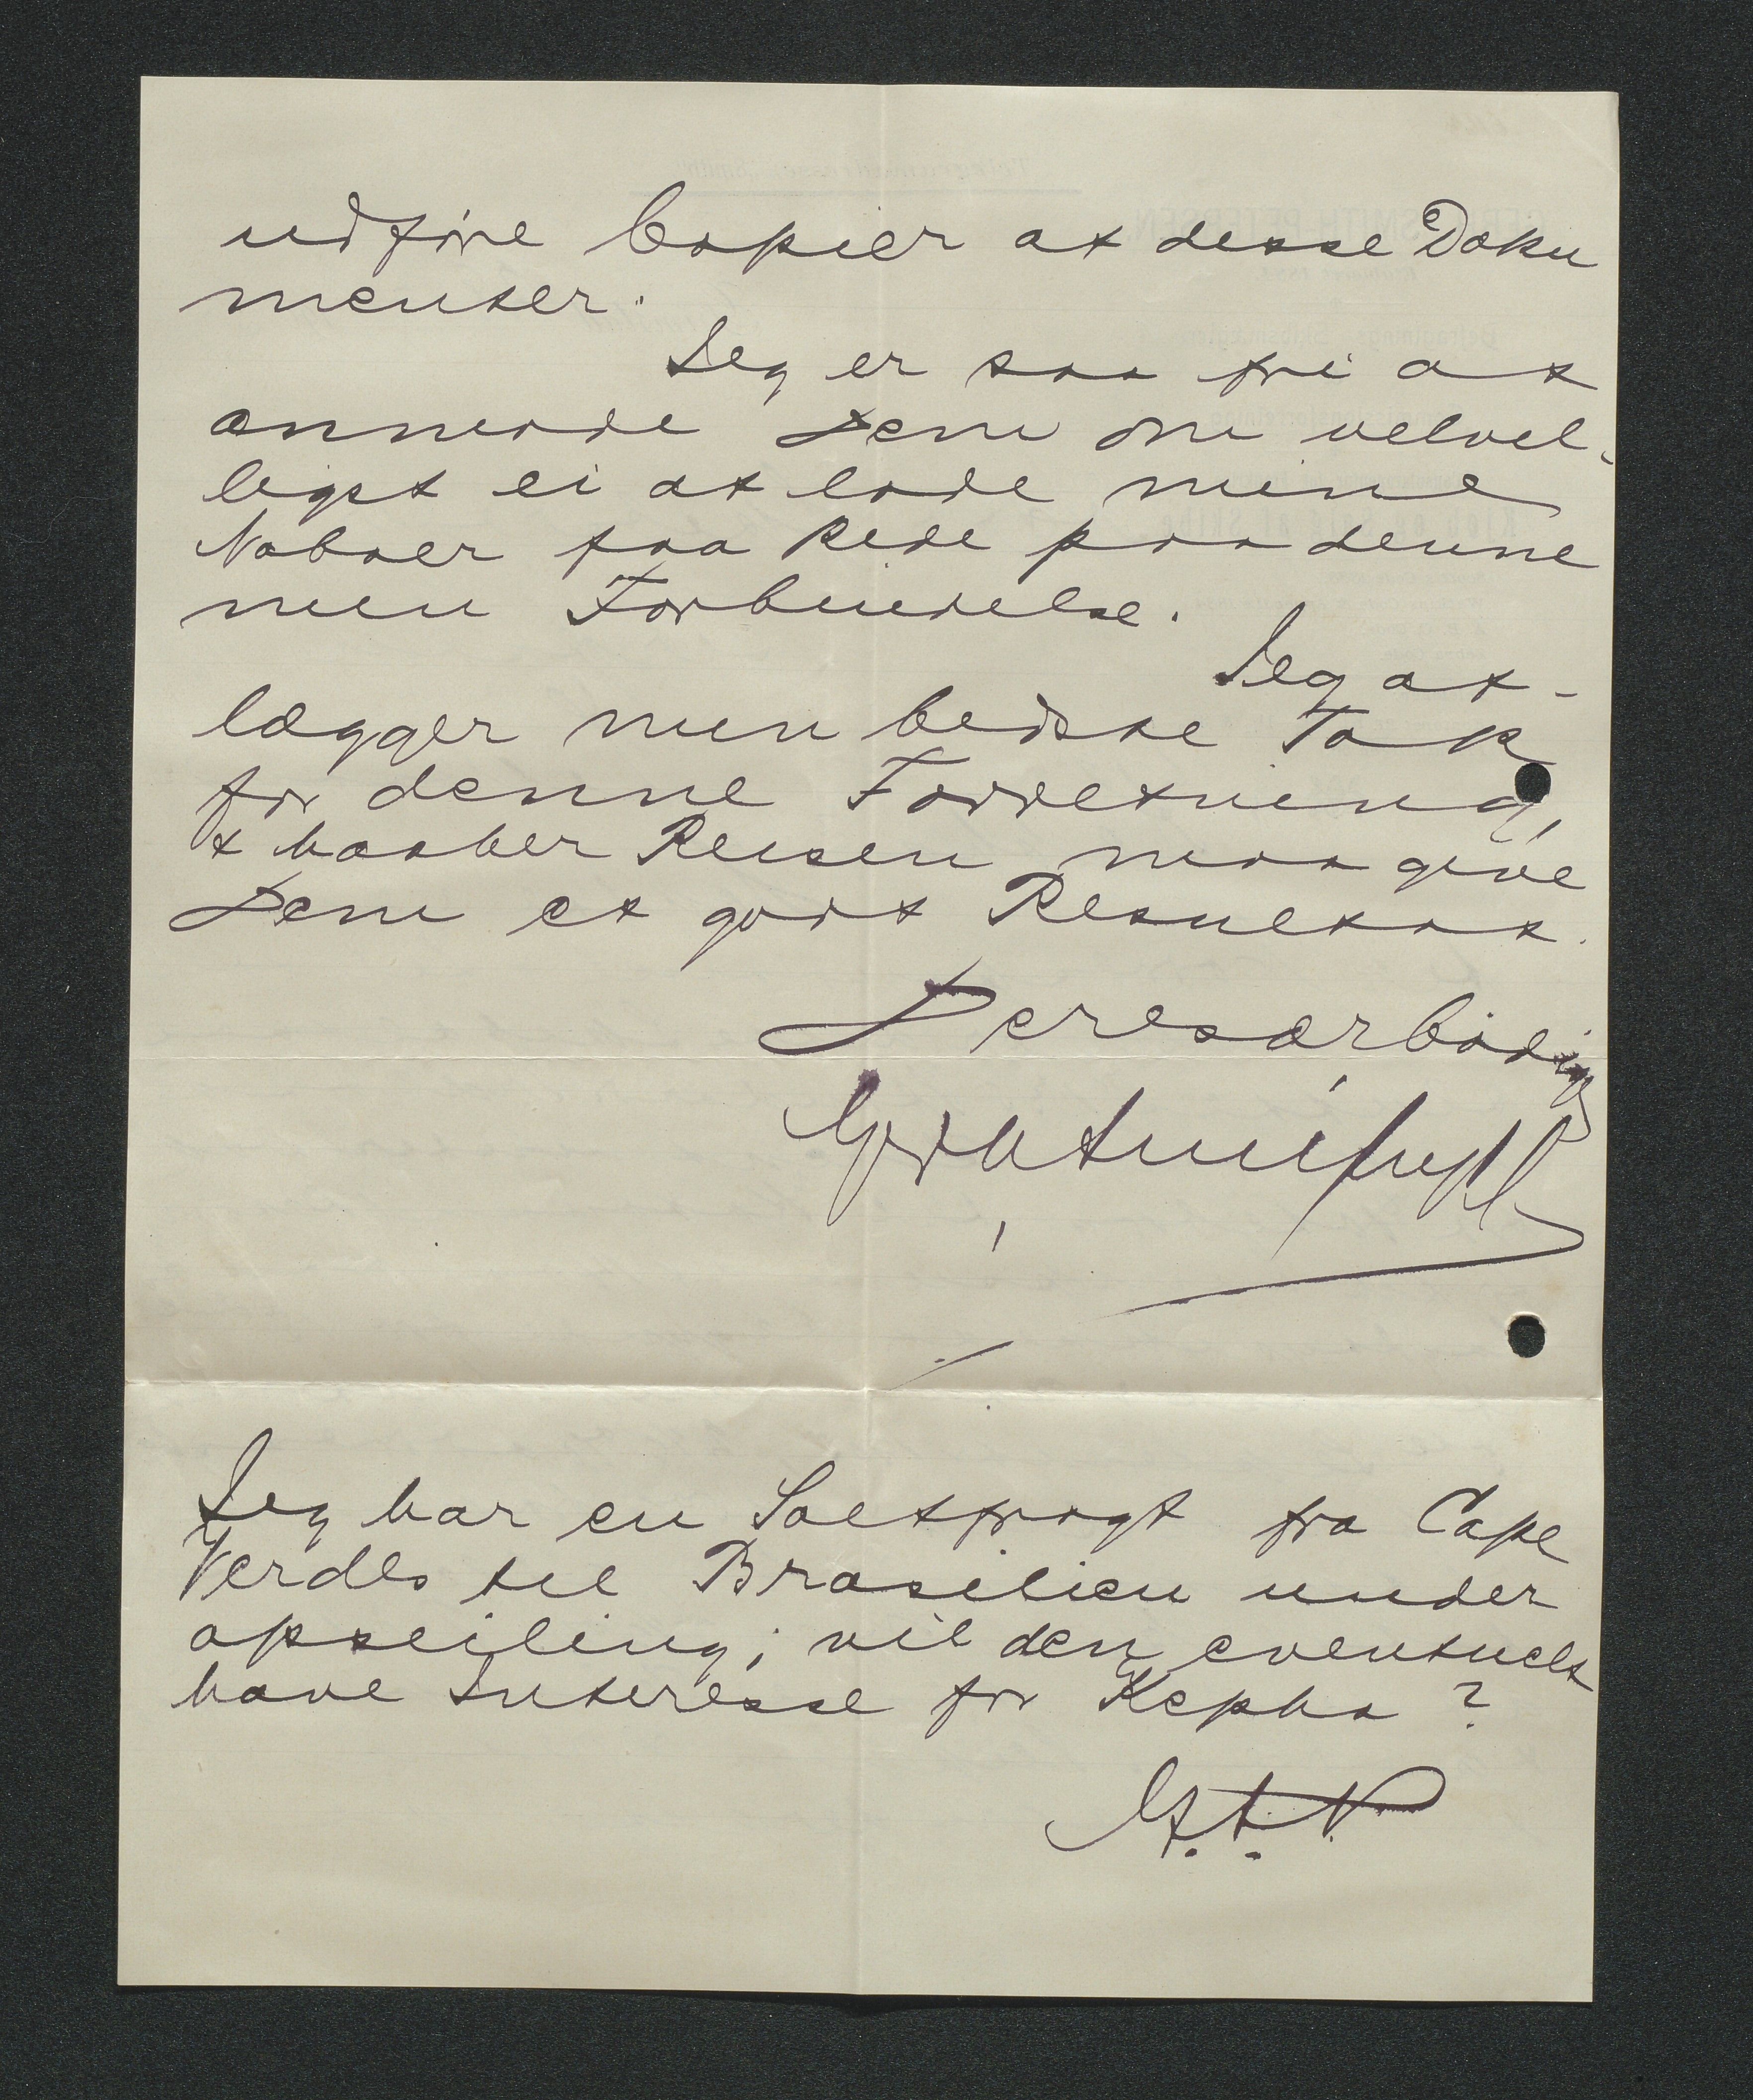 udføre Copier af disse Doku
menter.
Jeg er saa fri at
anmode Dem om velvil-
ligst ei at lade mine
Naboer faa Rede paa denne
min Forbindelse.
Jeg af-
lægger min bedste Tak
for denne Forretning,
& haaber Reisen maa give
Dem et godt Resultat.
Deres ærbødig
Jeg har en Saltfragt fra Cape
Verdes til Brasilien under
opseiling; vil den eventuelt
have Interesse for Kepha?
G.S.P.